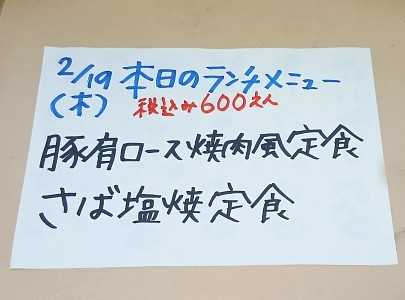 2/19 本日のランチメニュー
(木) 税込み600えん
豚肩ロース焼肉風定食
さば塩焼定食